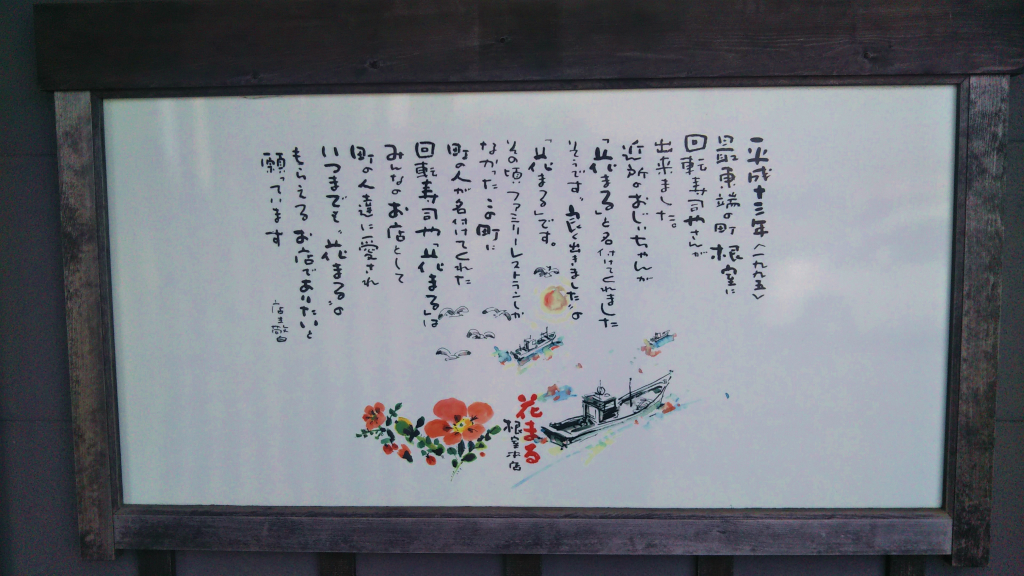 平成十三年〈一九九五〉
最東端の町 根室に
回転寿司やさんが
出来ました。
近所のおじいちゃんが
「花まる」と名付けてくれました
そうです。良く出来ました"の
「花まる」です。
その頃、ファミリーレストランしか
なかったこの町に
町の人が名付けてくれた
回転寿司や"花まる"は
みんなのお店として
町の人達に愛され
いつまでも"花まる"の
もらえるお店でありたいと
願っています
店主敬白
花まる
根室本店